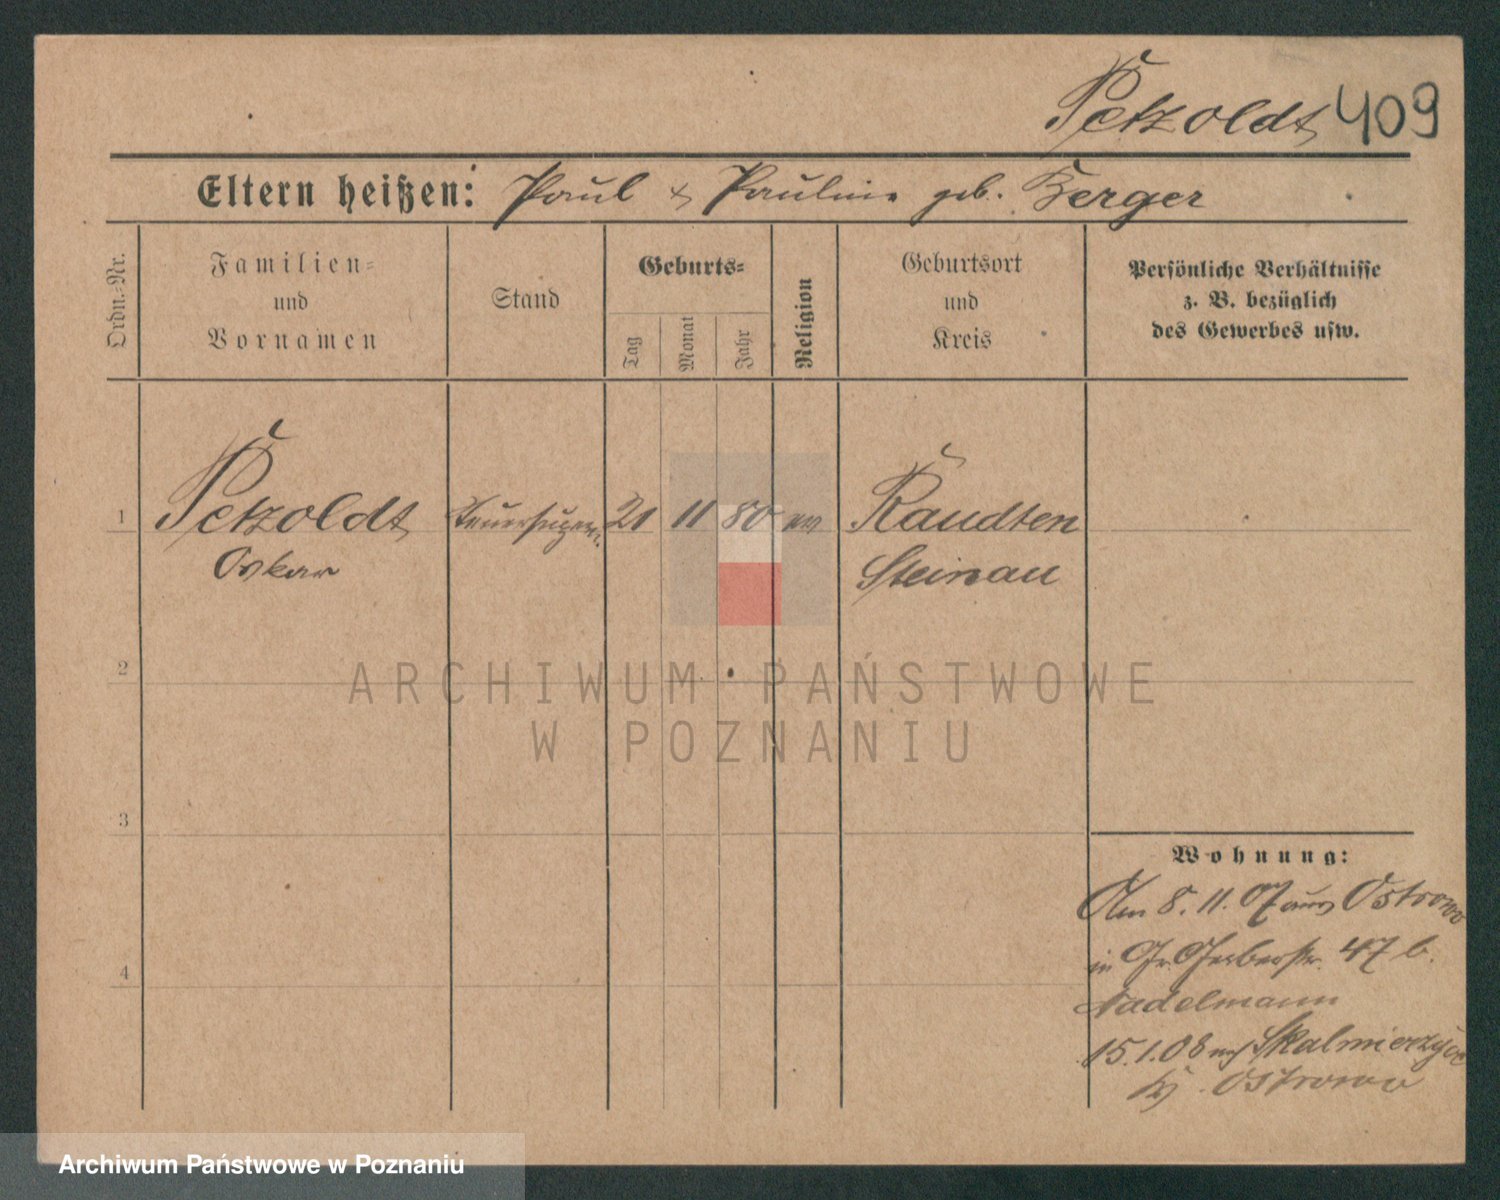 Petzoldt 409
Eltern heißen: Paul & Pauline geb. Berger
Ordn.-Nr.
Familien-
und
Vornamen
Stand
Geburts-
Tag
Monat
Jahr
Religion
Geburtsort
und
Kreis
Persönliche Verhältnisse
z. B. bezüglich
des Gewerbes usw.
1 Petzoldt 21 11 80 ev Raudten
Oskar Steinau
2
3
4
Wohnung:
Am 8.11.07 aus Ostrowo
in Gr. Gerberstr. 47 b.
Nadelmann
15.1.08 Skalmierzyce
Ostrowo
ARCHIWUM PAŃSTWOWE
W POZNANIU
Archiwum Państwowe w Poznaniu